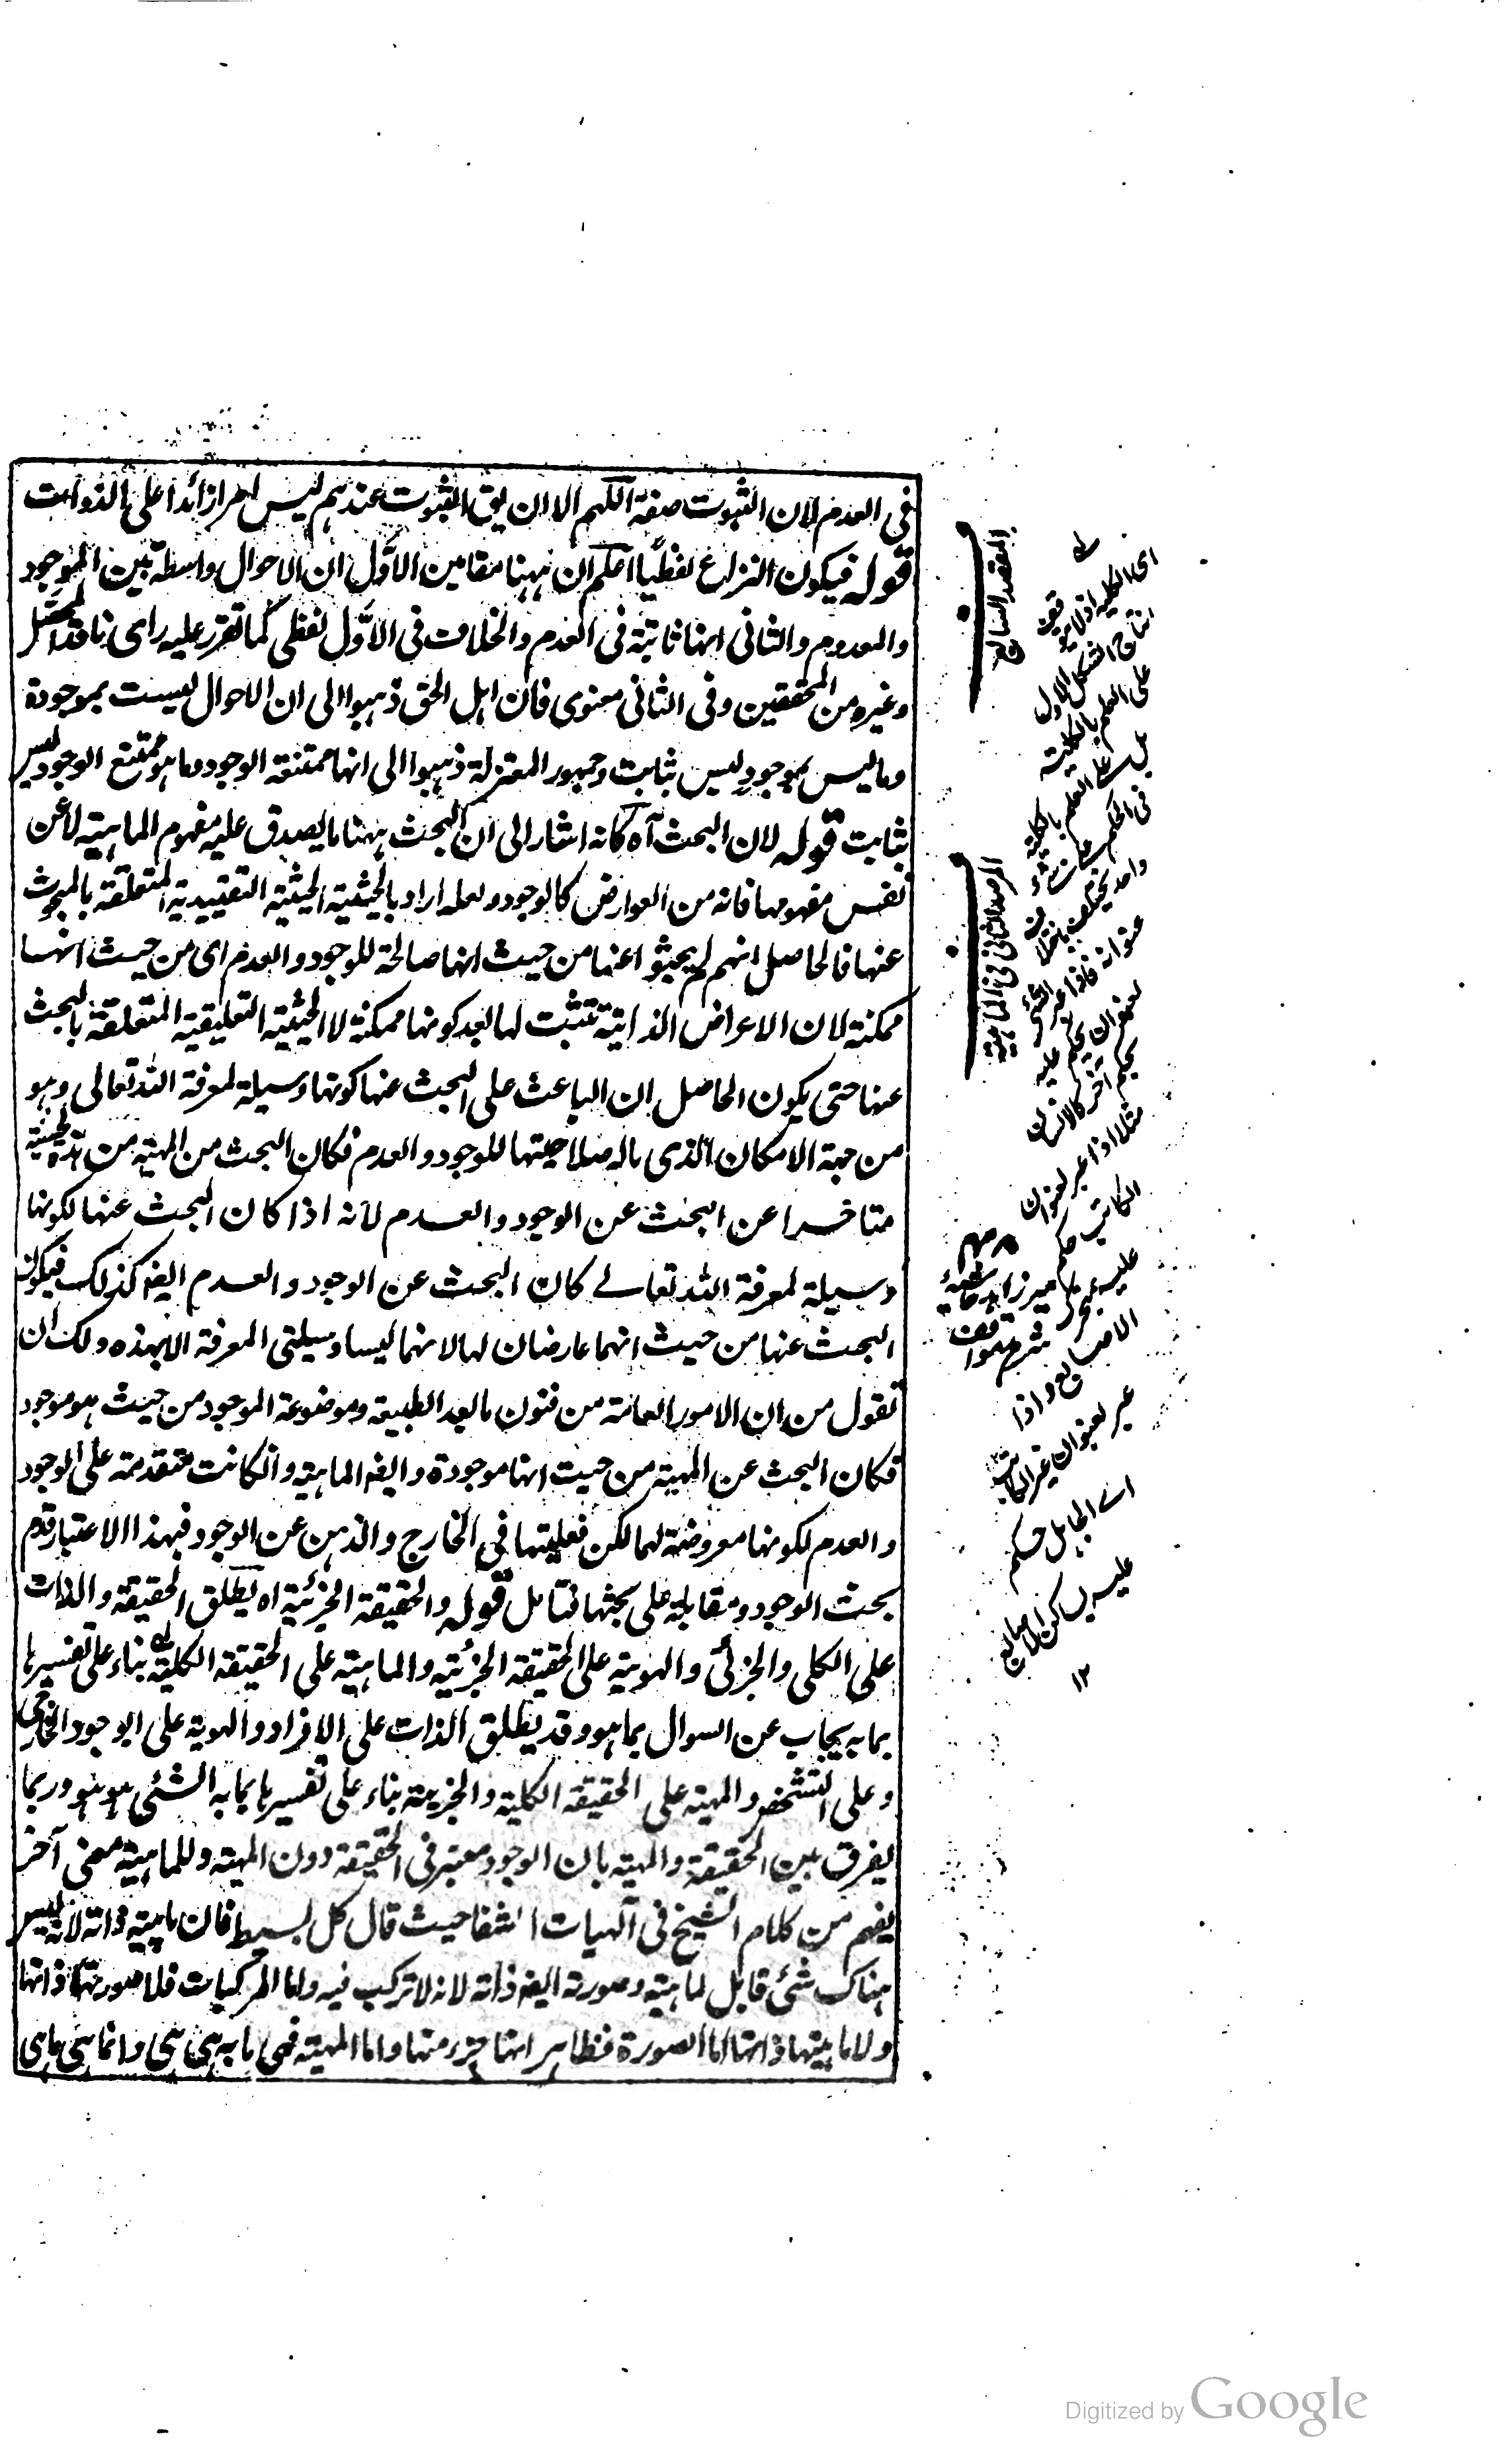 فى العدم لان الثبوت صفة اللهم الا ان يق الثبوت عندهم ليس امرا زائدا على الذوات
قوله فيكون النزاع لفظيًا اعلم ان ههنا مقامين الاوّل ان الاحوال واسطة بين الموجود
والمعدوم والثانى انها ثابتة فى العدم والخلاف فى الاوّل لفظى كما تقرر عليه راى ناقد المحصّل
وغيره من المحققين وفى الثانى معنوى فان اهل الحق ذهبوا الى ان الاحوال ليست بموجودة
وما ليس بموجود ليس بثابت وجمهور المعتزلة ذهبوا الى انها ممتنعة الوجود وما هو ممتنع الوجود ليس
بثابت قوله لان البحث آه كانه اشار الى ان البحث ههنا ما يصدق عليه مفهوم الماهية لا عن
نفس مفهومها فانه من العوارض كالوجود ولعله اراد بالحيثية الحيثية التقييدية المتعلقة بالمبحوث
عنها فالحاصل انهم لم يبحثوا عنها من حيث انها صالحة للوجود والعدم اى من حيث انها
ممكنة لان الاعراض الذاتية تثبت لها بعد كونها ممكنة لا الحيثية التعليقية المتعلقة بالبحث
عنها حتى يكون الحاصل ان الباعث على البحث عنها كونها وسيلة لمعرفة الله تعالى وهو
من جهة الامكان الذى باله صلاحيتها للوجود والعدم فكان البحث من المهية من هذه الحيثية
متاخرا عن البحث عن الوجود والعدم لانه اذا كان البحث عنها لكونها
وسيلة لمعرفة الله تعالے كان البحث عن الوجود والعدم ايضه كذلك فيكون
البحث عنها من حيث انهما عارضان لها لانهما ليسا وسيلتى المعرفة الا بهذه ولك ان
تقول من ان الامور العامة من فنون ما بعد الطبيعة وموضوعة الموجود من حيث هو موجود
فكان البحث عن المهية من حيث انها موجودة وايضه الماهية وانكانت متقدمة على الوجود
والعدم لكونها معروضة لهما لكن فعليتها فى الخارج والذهن عن الوجود فبهذا الاعتبار قدم
بحث الوجود ومقابله على بحثها فتامل قوله والحقيقة الجزئية اه يطلق الحقيقة والذات
على الكلى والجزئى والهوية على الحقيقة الجزئية والماهية على الحقيقة الكلية بناء على تفسيرها
بما به يجاب عن السوال بما هو وقد يطلق الذات على الافراد والهوية على الوجود الخارجى
وعلى التشخص والمهية على الحقيقة الكلية والجزئية بناء على تفسيرها بما به الشئى هو هو وربما
يفرق بين الحقيقة والمهية بان الوجود معتبر فى الحقيقة دون المهية وللماهية معنى آخر
يفهم من كلام الشيخ فى آلهيات الشفا حيث قال كل بسيط فان ماهيته ذاته لانه ليس
هناك شئى قابل لماهيته وصورته ايضه ذاته لانه لا تركب فيه واما المركبات فلا صورتها ذاتها
ولا ماهيتها ذاتها اما الصورة فظاهر انها جزء منها واما المهية فهى ما به هى هى وانما هى ماهى
المقصد السابع
المرصد الثانى فى الماهية
اى الكلية اذ لا يتوقف
انتاج الشكل الاول
على العلم بالكلية
بل على العلم بالكلية
فى الحكم على شئ
واحد يختلف باختلاف
عنوانه فاذا عبر الشئ
بعنوان يحكم عليه
بحكم آخر كالانسان
مثلا اذا عبر بعنوان
الكاتب حكم
عليه بتحرك
الاصابع واذا
عبر بعنوان غير الكاتب
اے الجاهل حكم
عليه بساكن الاصابع
١٢
مير زاهد حاشية
شرح مواقف